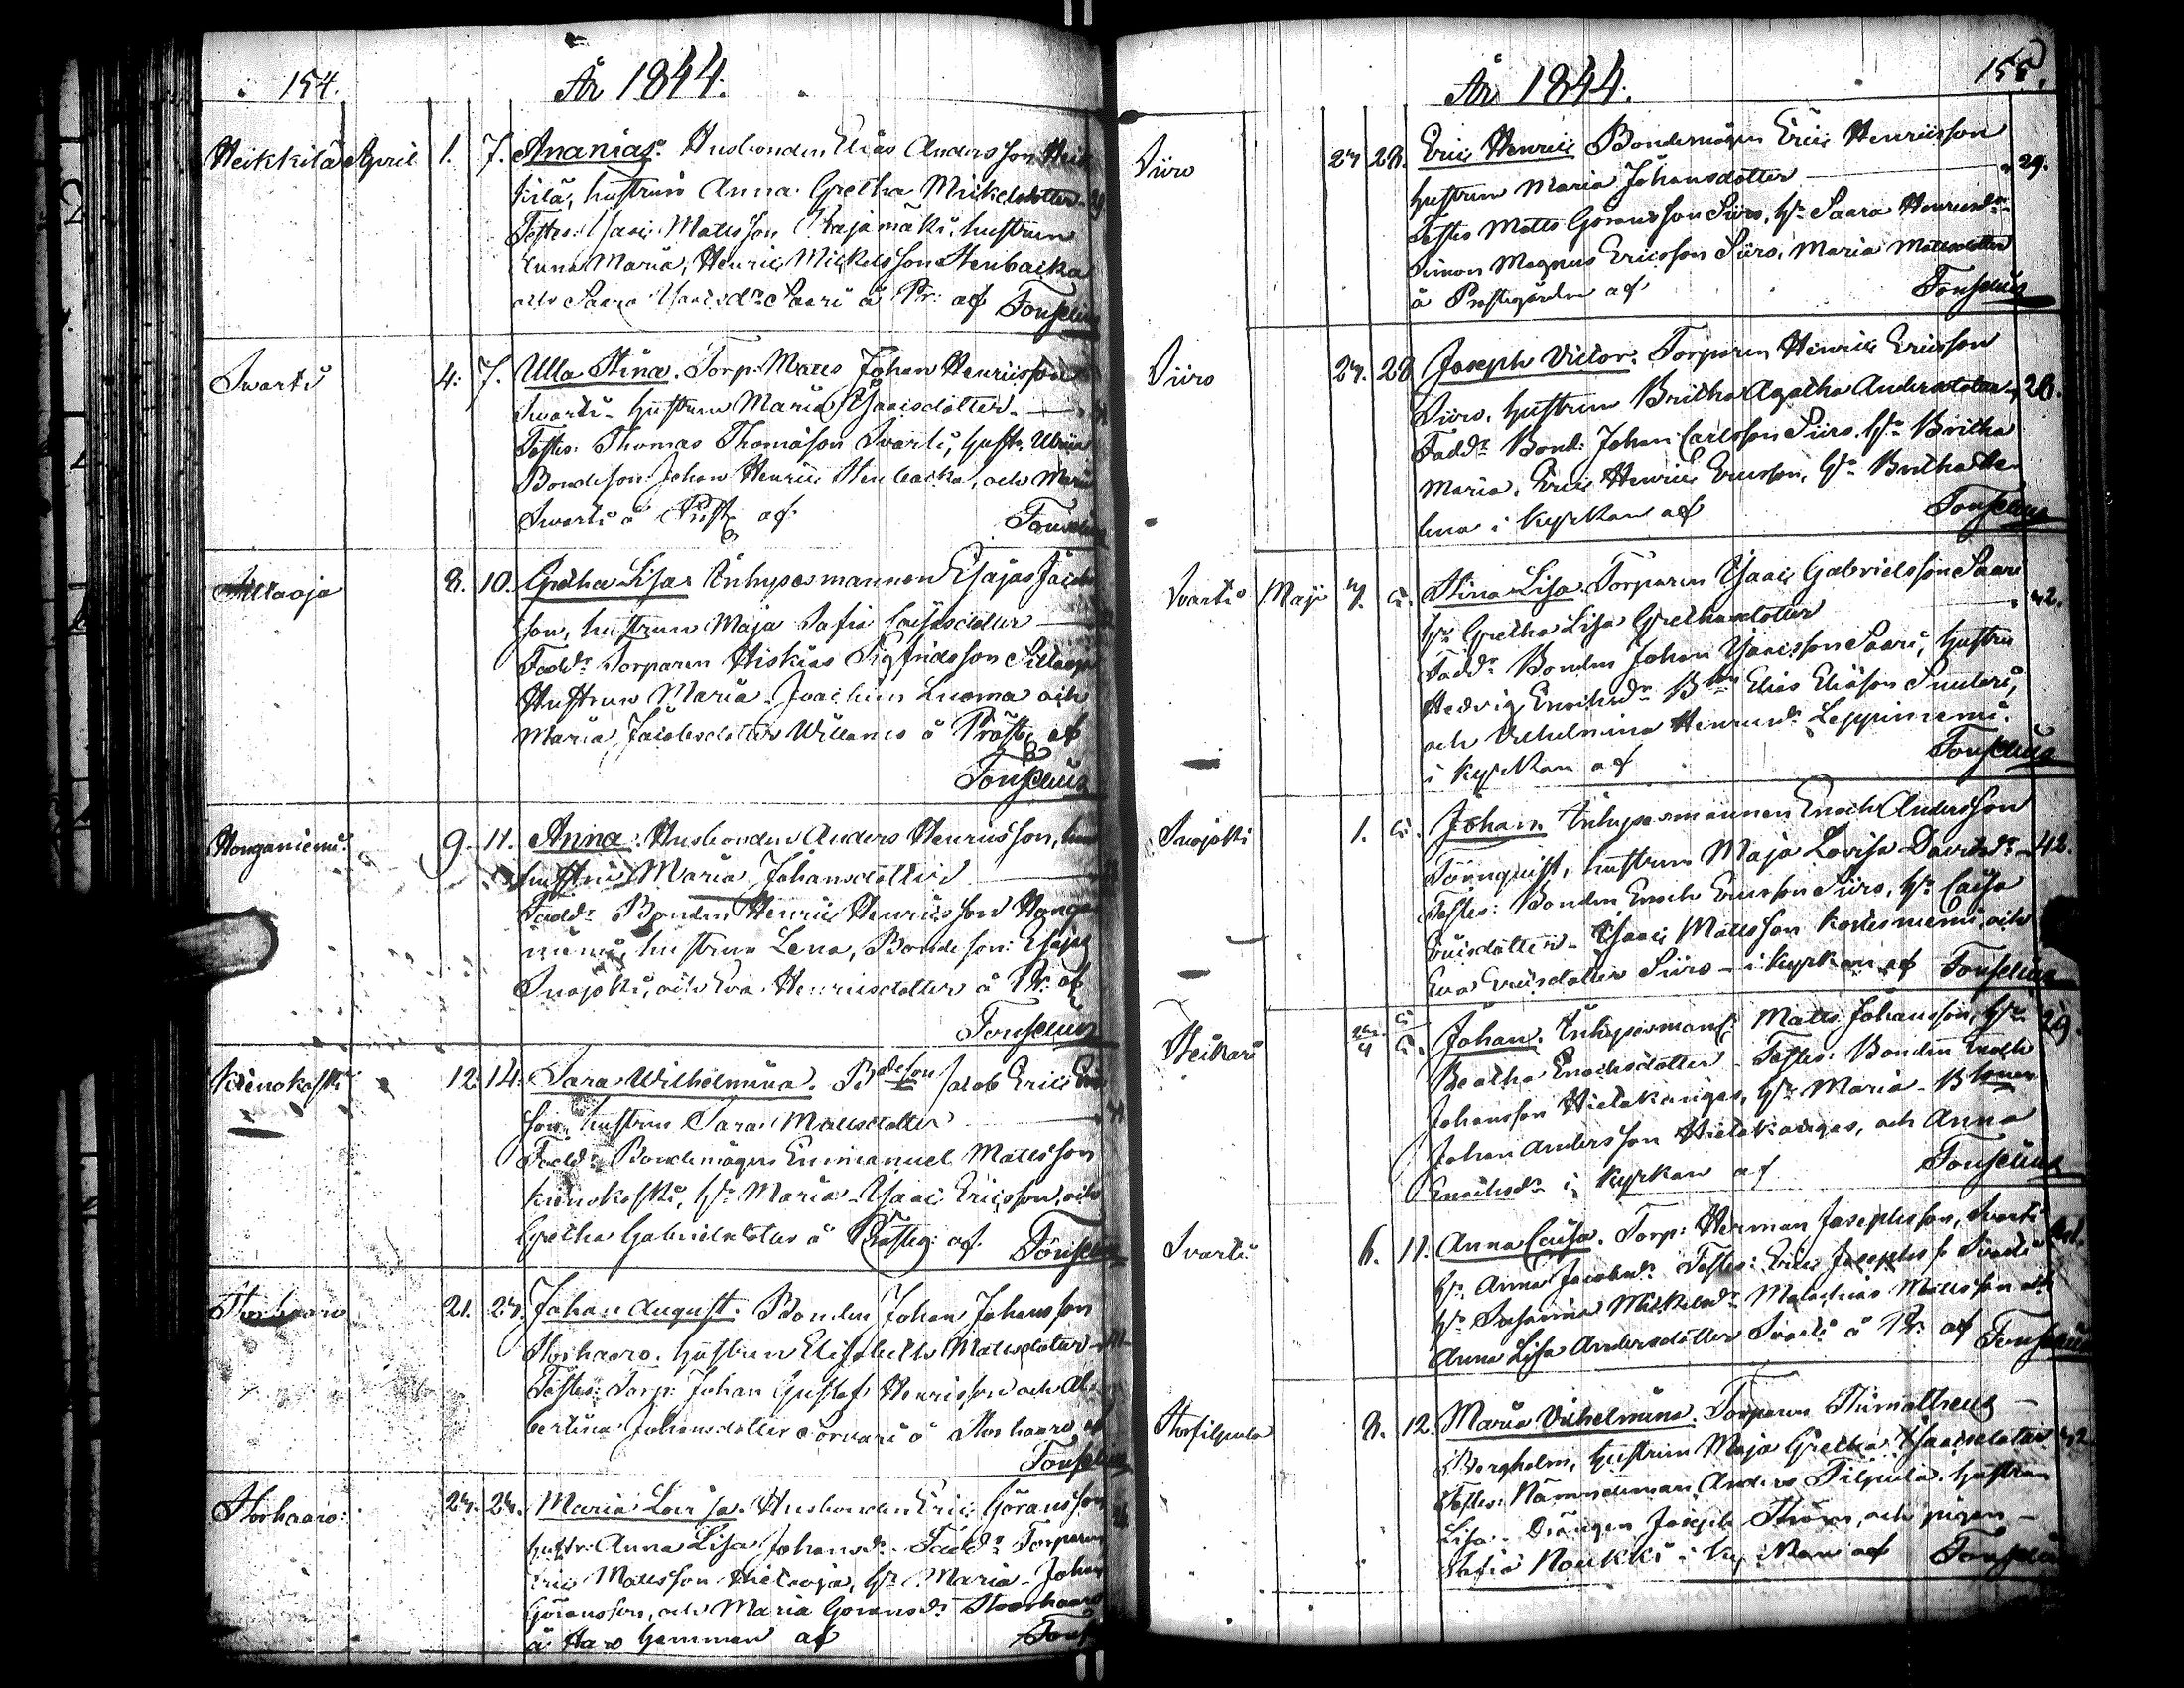 154.
År 1844.
Heikkilä April 1. 7. Ananias. Husbonden Elias Andersson Heik
kilä, hustrun Anna Gretha Mickelsdotter
Testes: Isaac Matsson Rajamäki, hustrun
Anna Maria, Henric Mickelsson Stenbacka
och Saara Isacsdr Saari å Pr: af Tonselius
Svarti 4. 7. Ulla Stina. Torp: Mats Johan Henricsson
Svarti - hustrun Maria Isaacsdotter
Testes: Thomas Thomasson Svarti, hustr.
Bondeson Johan Henric Stenbacka, och Maria
Svarti å Präst af Tonselius
Sillaoja 8. 10. Gretha Lisa. Inhysesmannen Esajas Jacobs
son, hustrun Maja Safia Esaiasdotter
Faddr Torparen Hiskias Sigfridsson Sillaoja
Hustrun Maria. Joachim Luoma och
Maria Jacobsdotter Willanes å Prästg af
Tonselius
Honganiemi 9. 11. Anna. Husbonden Anders Henricsson,
hustru Maria Johansdotter
Faddr Bonden Henric Henricsson Honga
niemi, hustrun Lena, Bondeson: Esajas
Snåjoki, och Eva Henricsdotter å Pr: af
Tonselius
Kienokoski 12. 14. Sara Wilhelmina. Bdeson Jacob Eric Erics
son, hustrun Sara Matsdotter
Faddr Bondemågen Emmanuel Matsson
Kienokoski, hr Maria - Isaac Ericsson, och
Gretha Gabrielsdotter å Prästeg: af Tonselius
Storhaaro 21. 27. Johan August. Bonden Johan Johansson
Storhaaro, hustrun Elisabeth Matsdotter
Testes: Torp: Johan Gustaf Henricsson och Al
bertina Johansdotter Sorvari å Storhaaro af
Tonselius
Storhaaro: 27. 27. Maria Lovisa. Husbonden Eric Göransson
hustr: Anna Lisa Johansdr - Faddr Torparen
Eric Matsson, hr Maria - Johan
Göransson, och Maria Göransdr Storhaaro
å Haro hemman af Tons
155.
År 1844.
Siiro 27 28. Eric Henric Bondemågen Eric Henricsson
hustrun Maria Johansdotter 29.
Testes Mats Göransson Siiro, hr Saara Henricsdr
Simon Magnus Ericsson Siiro, Maria Matsdotter
å Prästgården af Tonselius
Siiro 27. 28 Joseph Victor. Torparen Henric Ericsson
Siiro, hustrun Britha Agatha Andersdotter 28.
Faddr Bond: Johan Carlsson Siiro, hr Britha
Maria, Eric Henric Ericsson, hr Britha He
lena i kyrkan af Tonselius
Svarti Maji 7. Stina Lisa Torparen Isaac Gabrielsson Saari
hr Gretha Lisa Grelsdotter 42.
Faddr Bonden Johan Isacsson Saari, hustru
Hedvig Enochsdr Elias Eliasson Puulari,
och Vilhelmina Henricsdr Leppiniemi.
i kyrkan af Tonselius
Snåjoki 1. Johan Inhysesmannen Enoch Andersson
Törnquist, hustrun Maja Lovisa Davidsdr 42.
Testes: Bonden Enoch Ericsson Siiro, hr Caisa
Ericsdotter - Isaac Matsson Koskesniemi och
Eva Ericsdotter Siiro - i kyrkan af Tonselius
Heikari Johan. Inhysesman: Mats Johansson, hr 29.
Beatha Enochsdotter - Testes: Bonden Enoch
Johansson Hietakangas, hr Maria -
Johan Andersson Hietakangas, och Anna
Enochsdr i kyrkan af Tonselius
Svarti 6. 11. Anna Caisa. Torp: Herman Josephsson, Svarti
hr Anna Jacobsdr Testes: Eric Josephss Svarti
hr Susanna Mickelsdr Malachias Matsson och
Anna Lisa Andersdotter Svarti å Pr: af Tonselius
Storfilpula 8. 12. Maria Vilhelmina. Torparen Thimotheus
Bergholm, hustrun Maja Gretha Isaacsdotter 42
Testes: Nämndeman Anders Filpula, hustrun
Lisa - Drängen Joseph Ström, och pigan
Stafia Noukki i kyrkan af Tonselius